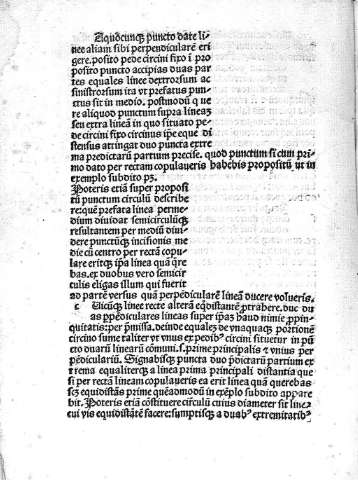 A quocunq; puncto date li
nee aliam sibi perpendicularē eri
gere. posito pede circini fixo ī pro
posito puncto accipias duas par
tes equales linee dextrorsum ac
sinistrorsum ita vt prefatus pun⸗
ctus sit in medio. postmodū que
re aliquod punctum supra lineā
seu extra lineā in quo situato pe⸗
de circini fixo circinus ip̄e eque di
stensus attingat duo puncta extre
ma predictarū partium precise. quod punctum si cum pri
mo dato per rectam copulaueris habebis propositū vt in
exemplo subdito
Poteris etiā super proposi
tū punctum circulū describe
re: quē prefata linea perme⸗
dium diuidat semicirculūq;
resultantem per mediū diui⸗
dere punctūq; incisionis me
die cū centro per rectā copu⸗
lare eritq; ip̄a linea quā que
bas. ex duobus vero semicir
culis eligas illum qui fuerit
ad partē versus quā perpendicularē lineā ducere volueris.
Uicūq; linee recte alterā eq̄distantē ꝓtrahere. duc du
as ꝑpēdiculares lineas super ip̄az haud nimie ꝓpin⸗
quitatis: per ꝓmissa. deinde equalez de vnaquaq; portionē
circino sume taliter vt vnus ex pedib⁹ circini situetur in pū
cto duarū linearū cōmuni. s. prime principalis ⁊ vnius per
pēdiculariū. Signabisq; puncta duo p̄dictarū partium ex
trema equaliterq; a linea prima principali distantia que
si per rectā lineam copulaueris ea erit linea quā querebas
sez equidistās prime quēadmodū in exēplo subdito appare
bit. Poteris etiā cōstituere circulū cuius diameter sit linee
cui vis equidistātē facere: sumptisq; a duab⁹ extremitatib⁹